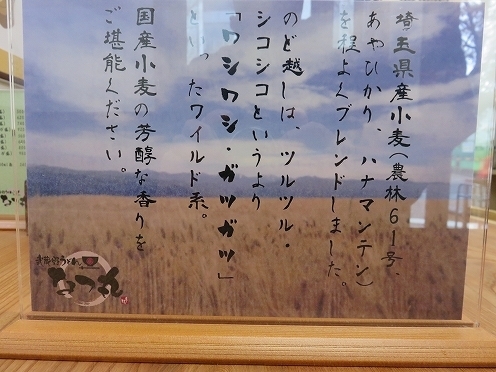 埼玉県産小麦(農林61号、
あやひかり、ハナマンテン)
を程よくブレンドしました。
のど越しは、ツルツル・
シコシコというより
「ワシワシ・ガツガツ」
といったワイルド系。
国産小麦の芳醇な香りを
ご堪能ください。
武蔵野うどん